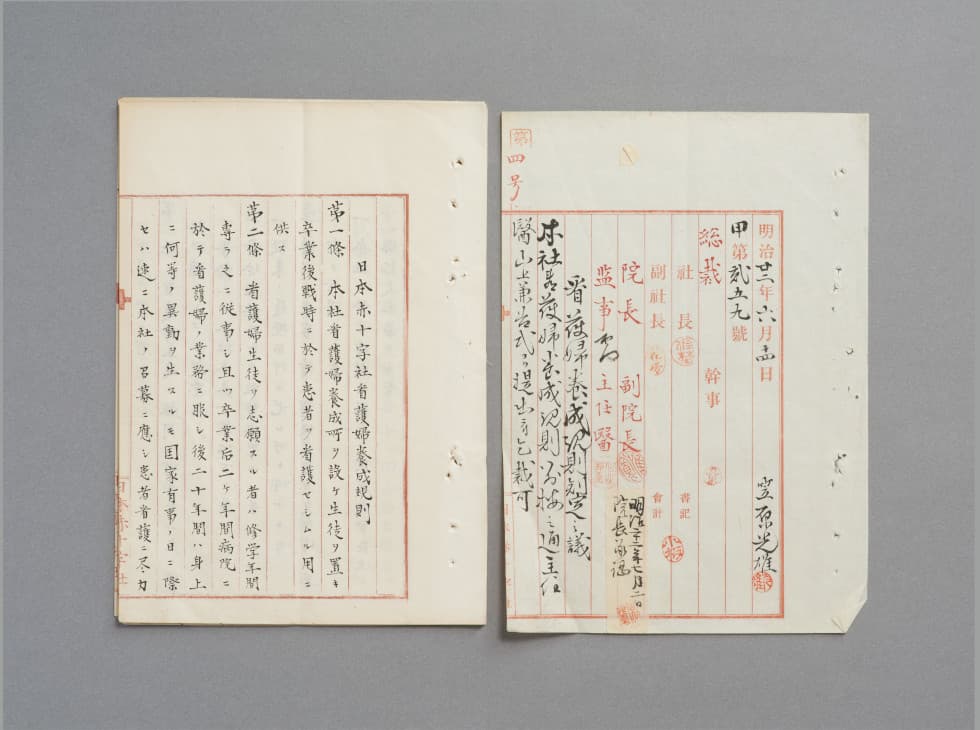 第
四号
明治廿二年六月十四日
甲第貳五九號
笠原光雄
総裁
幹事
社長
副社長
書記
會計
院長 副院長
監事 主任醫
明治二十二年七月二日
院長承認
看護婦養成規則制定之議
本社看護婦養成規則別按之通主任
醫山上兼善式ヨリ提出
裁可
日本赤十字社看護婦養成規則
第一條 本社看護婦養成所ヲ設ケ生徒ヲ置キ
卒業後戦時ニ於テ患者ヲ看護セシムル用ニ
供ス
第二條 看護婦生徒ヲ志願スルノ者ハ修学年間
専ラ之ニ従事シ且ツ卒業后二ケ年間病院ニ
於テ看護婦ノ業務ニ服シ後二十年間ハ身上
ニ何等ノ異動ヲ生スルモ国家有事ノ日ニ際
セハ速ニ本社ノ召募ニ應シ患者看護ニ尽力